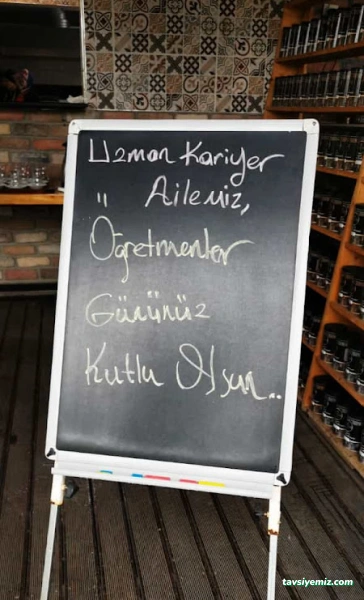 Uzman Kariyer
Ailemiz,
Öğretmenler
Gününüz
Kutlu Olsun..
tavsiyemiz.com